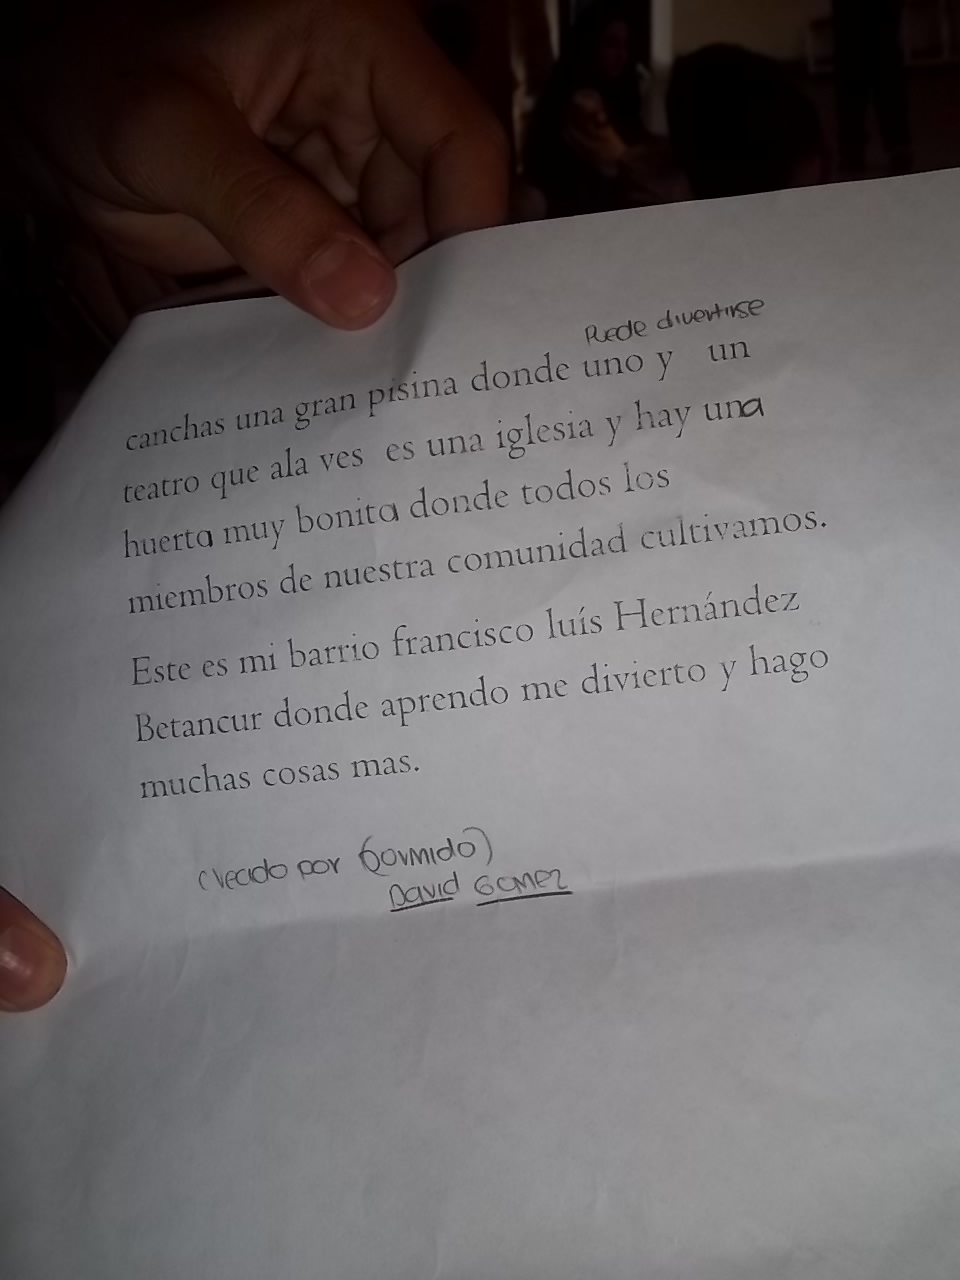 Puede divertirse
canchas una gran pisina donde uno y un
teatro que ala ves es una iglesia y hay una
huerta muy bonita donde todos los
miembros de nuestra comunidad cultivamos.
Este es mi barrio francisco luís Hernández
Betancur donde aprendo me divierto y hago
muchas cosas mas.
por
David Gomez